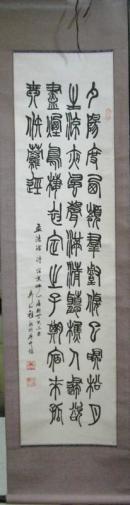 夕陽度西嶺群壑倏已暝松月
生夜涼風泉滿清聽樵人歸欲
盡煙鳥棲初定之子期宿來孤
琴候蘿徑
孟浩然詩